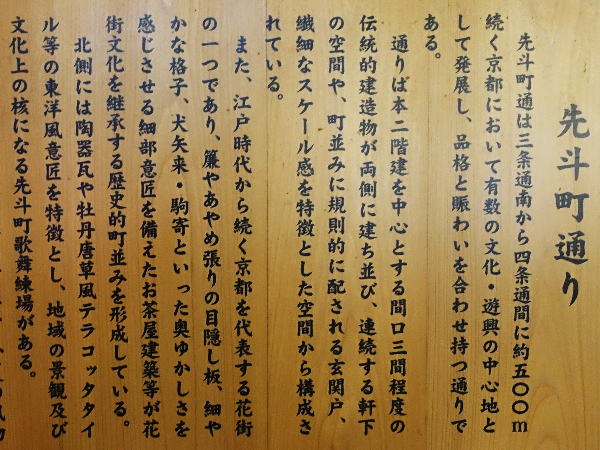 先斗町通り
先斗町通は三条通南から四条通間に約五〇〇m
続く京都において有数の文化・遊興の中心地と
して発展し、品格と賑わいを合わせ持つ通りで
ある。
通りは本二階建を中心とする間口三間程度の
伝統的建造物が両側に建ち並び、連続する軒下
の空間や、町並みに規則的に配される玄関戸、
繊細なスケール感を特徴とした空間から構成さ
れている。
また、江戸時代から続く京都を代表する花街
の一つであり、簾やあやめ張りの目隠し板、細や
かな格子、犬矢来・駒寄といった奥ゆかしさを
感じさせる細部意匠を備えたお茶屋建築等が花
街文化を継承する歴史的町並みを形成している。
北側には陶器瓦や牡丹唐草風テラコッタタイ
ル等の東洋風意匠を特徴とし、地域の景観及び
文化上の核になる先斗町歌舞練場がある。